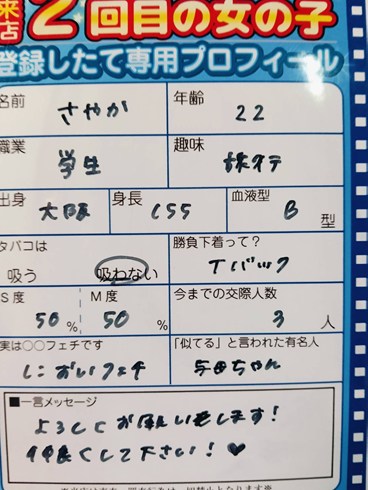 来店2回目の女の子
登録したて専用プロフィール
名前 さやか 年齢 22
職業 学生 趣味 旅行
出身 大阪 身長 155 血液型 B 型
タバコは 吸う 吸わない 勝負下着って? Tバック
S度 50% M度 50% 今までの交際人数 3人
実は○○フェチです においフェチ 「似てる」と言われた有名人 与田ちゃん
■一言メッセージ
よろしくお願い致します!
仲良くして下さい!♥